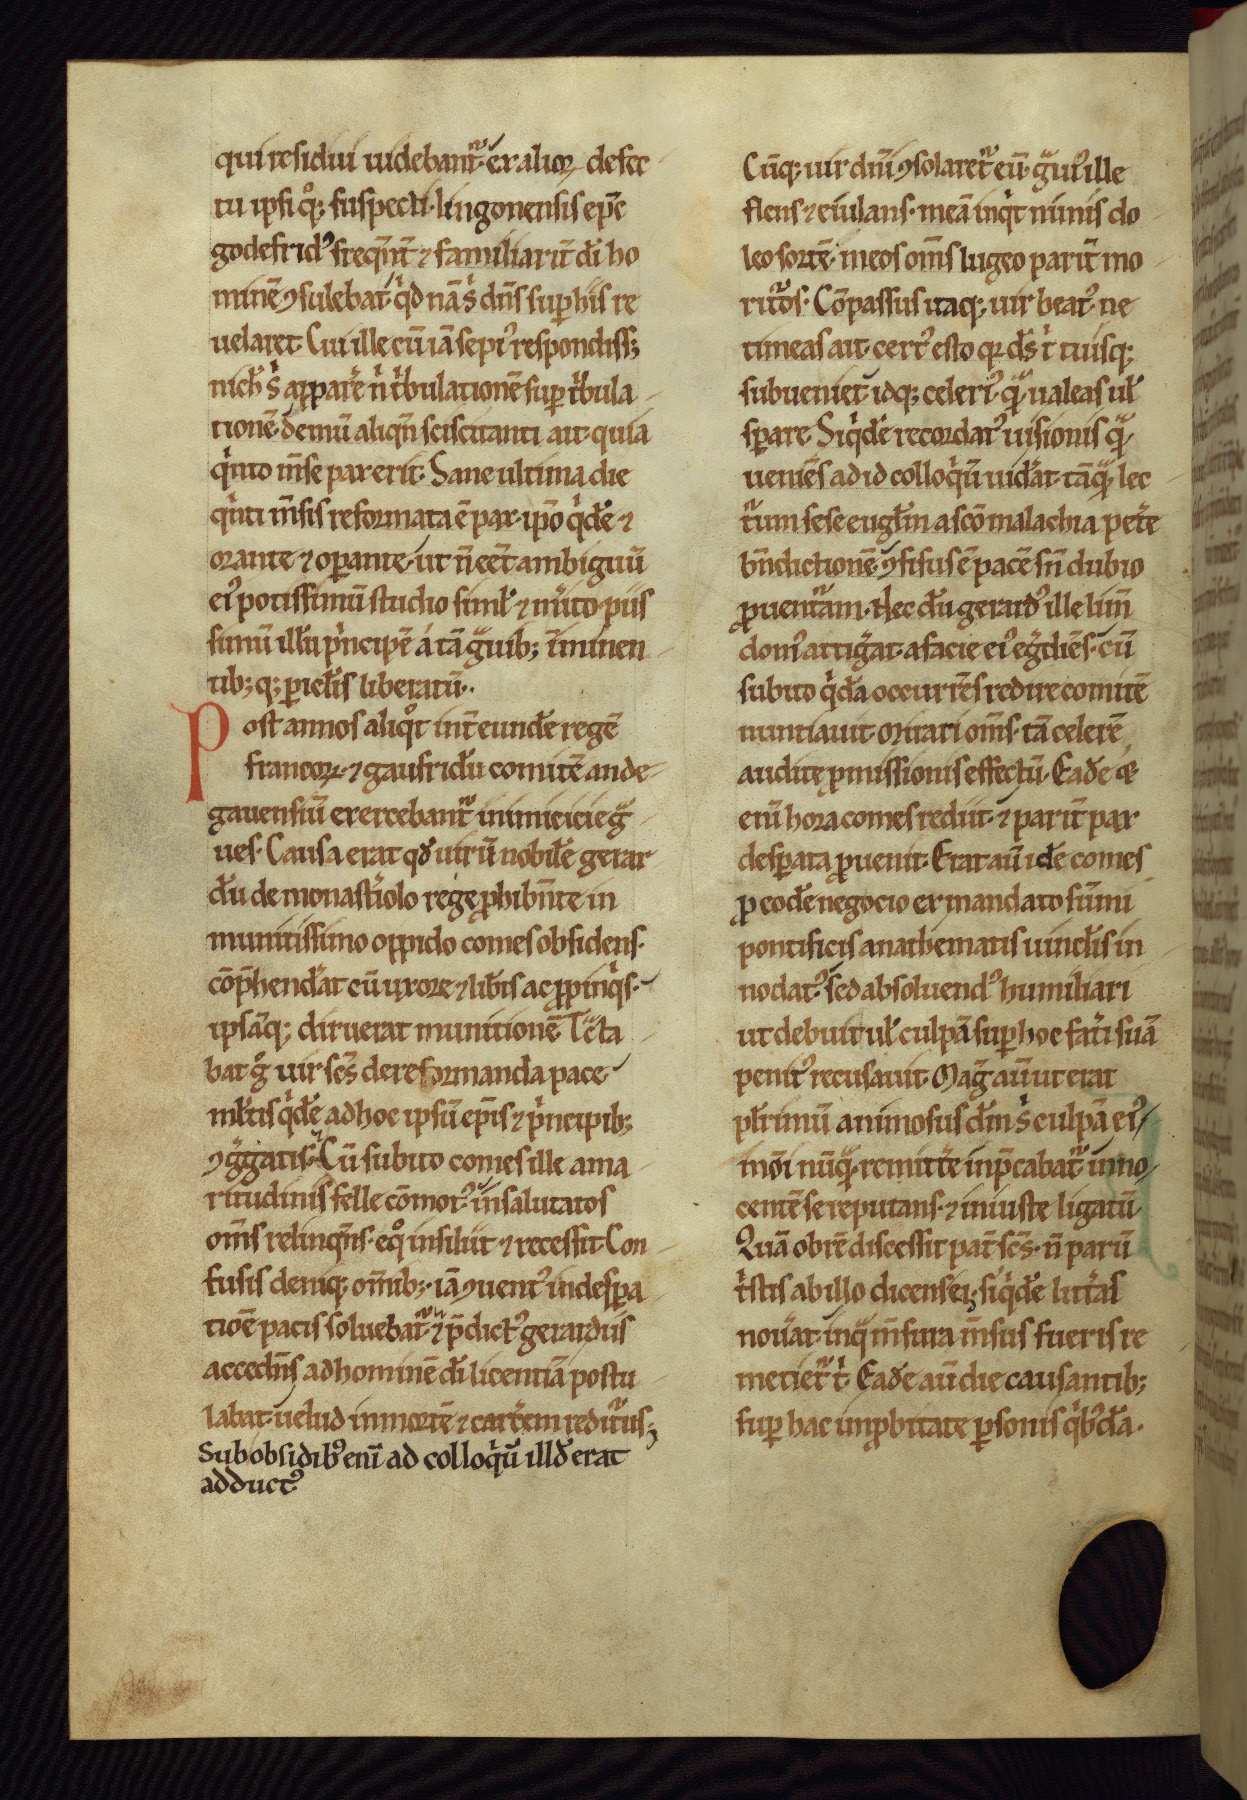 qui residui uidebant᷑. ex alioꝝ defec
tu ipsi qͦꝫ suspecti. lingonensis ep̄c
godefridꝰ freqn̄t᷑ ⁊ familiarit᷑ dī ho
minē ꝯsulebat. qͥd nām s͛ dn̄s suꝑ hiis re
uelaret. Cui ille cū iā sepiꝰ respondiss;
nich̄ s͛ apparē n̄ tͥbulationē suꝑ tͥbula
tionē. demū aliqn̄ sciscitanti ait. quia
qͥnto m̄se pax erit. Sane ultima die
qͥnti m̄sis reformata ē pax. ip̄o qͥdē ⁊
orante ⁊ oꝑante. ut n̄ eēt ambiguū
eiꝰ potissimū studio simł ⁊ m͛ito. piis
simū illū pͥncipē a tā gͣuibꝫ īminen
tibꝫqꝫ ꝑicłis liberatū.
Post annos aliqͦt int᷑ eundē regē
francoꝝ. ⁊ gaufridū comitē ande
gauensiū exercebant᷑ inimicicie gͣ
ues. Causa erat qd̄ uirū nobilē gerar
dū de monast᷑iolo rege ꝓhibn̄te in
munitissimo oppido comes obsidens.
cōp̄hendat cū uxore ⁊ lib͛is ac ꝓpinqͥs.
ipsāqꝫ diruerat munitionē. Tͣcta
bat gͦ uir sc̄s de reformanda pace
ml̄tis qͥdē ad hoc ipsū ep̄is ⁊ pͥncipibꝫ
ꝯgͣgatis. Cū subito comes ille ama
ritudinis felle cōmotꝰ insalutatos
om̄s relinqn̄s. eqͦ insiliit ⁊ recessit. Con
fusis deniqꝫ om̄ibꝫ. iā ꝯuentꝰ in despa
tiōe pacis soluebat᷑. ⁊ p̄dictꝰ gerardus
accedn̄s ad hominē dī licentiā postu
labat. uelud in mortē ⁊ carc͛em reditͧus;
Sub obsidibꝰ enī ad colloqͥū illd̄ erat
adductꝰ
Cūqꝫ uir dn̄i ꝯsolaret᷑ eū. gͣuiꝰ ille
flens ⁊ eiulans. meā inqͥt nimis do
leo sortē. meos om̄s lugeo parit᷑ mo
ritͧros. Cōpassus itaqꝫ uir beatꝰ. ne
timeas ait. certꝰ esto qꝛ ds̄ t͛ tuisqꝫ
subueniet. idqꝫ celeriꝰ. qͣ ualeas uł
sꝑare. Siqͥdē recordatꝰ uisionis qͣ
ueniēs ad id colloqͥū uidat. tāqͣ lec
tͧrum sese eugłm a scō malachia pet͛e
bn̄dictionē. ꝯfisus ē pacē sn̄ dubio
ꝓuentͧam. Hec dū gerardꝰ ille lim̄
domꝰ attigͣat. a facie eiꝰ egͣdiēs. cū
subito qͥdā occurrēs redire comitē
nuntiauit. Mirari om̄s. tā celerē
audite ꝓmissionis effectū. Eadē qͥ
enī hora comes rediit. ⁊ parit᷑ pax
desꝑata ꝓuenit. Erat aū idē comes
ꝓ eodē negocio ex mandato sūmi
pontificis anathematis uincłis in
nodatꝰ. sed absoluendꝰ humiliari
ut debuit uł culpā suꝑ hoc fat᷑i suā
penitꝰ recusauit. Magͥ aū ut erat
plͥrimū animosus dīm s͛ culpā eiꝰ
mōi nūqͣ remitt͛e inp̄cabat᷑. inno
centē se reputans. ⁊ iniuste ligatū.
Quā ob rē discessit pat᷑ sc̄s. n̄ parū
tͥstis ab illo dicens ei. siqͥdē litt͛as
nouat. in qͣ m̄sura m̄sus fueris re
metiet᷑ t͛. Eadē aū die causantibꝫ
suꝑ hac inꝓbitate ꝑsonis qͥbꝰdā.